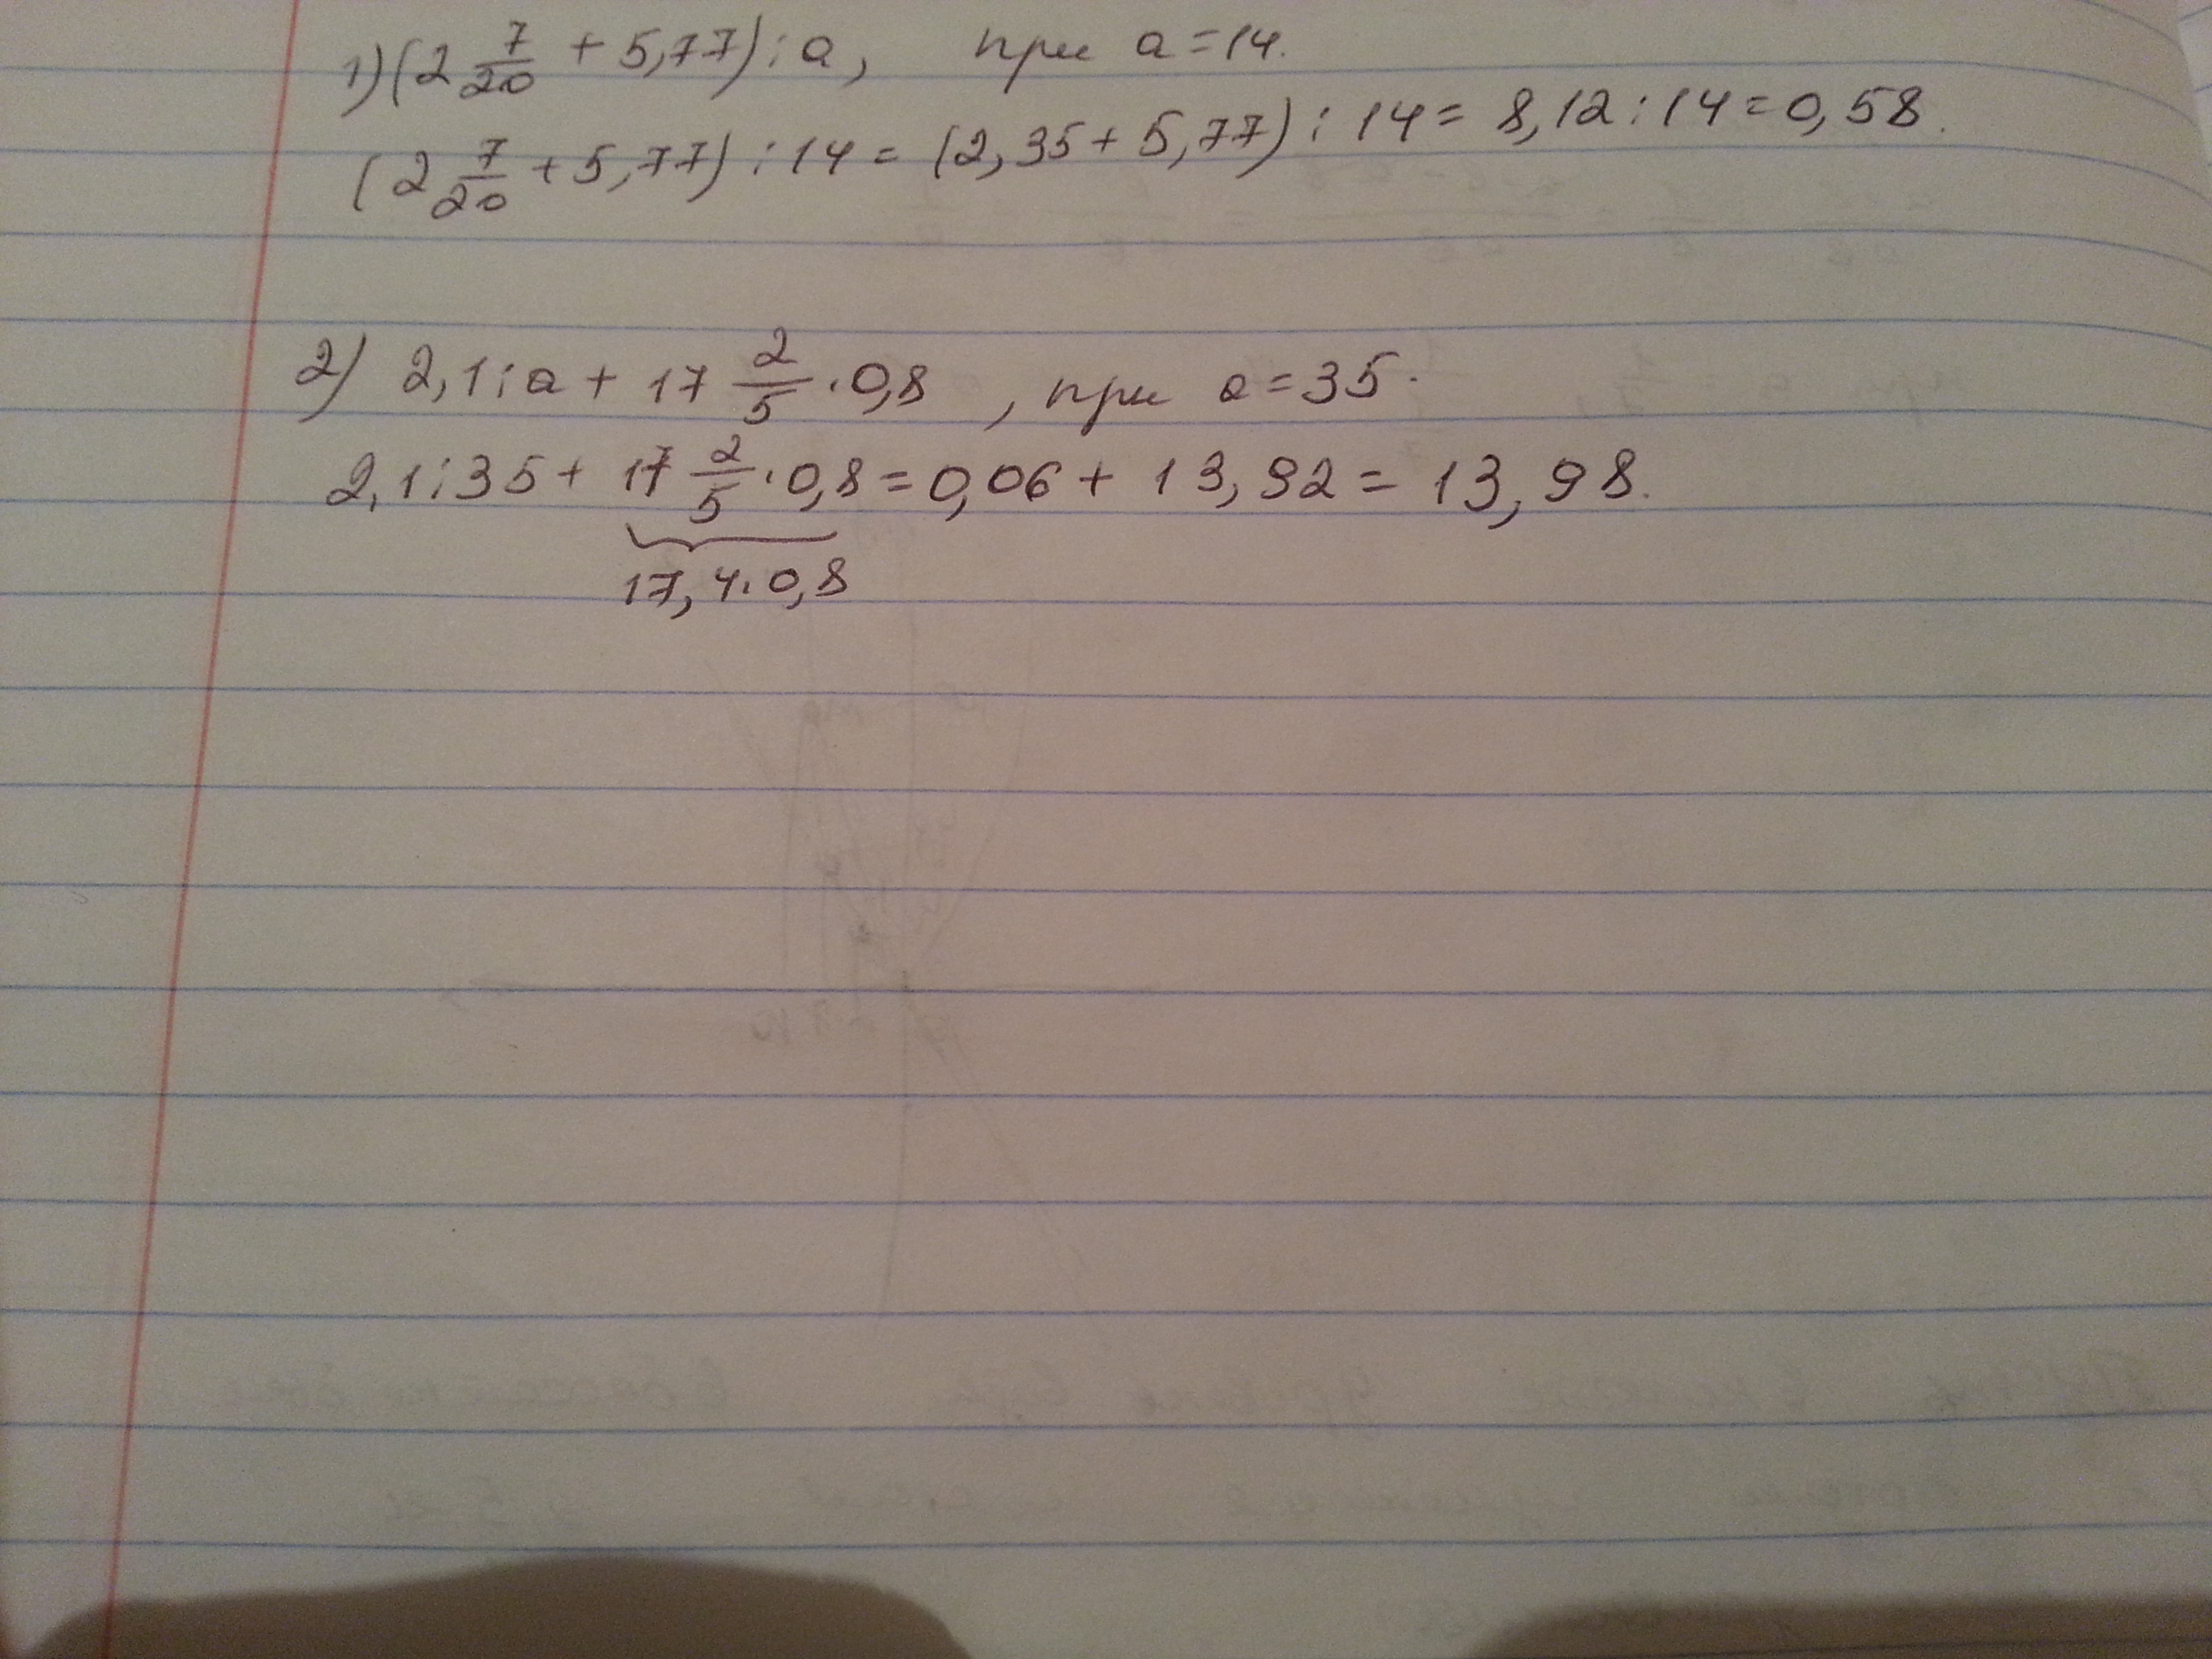 1) (2 7/20 + 5,77) : a, при a = 14.
(2 7/20 + 5,77) : 14 = (2,35 + 5,77) : 14 = 8,12 : 14 = 0,58.
2) 2,1 : a + 17 2/5 · 0,8 , при a = 35.
2,1 : 35 + 17 2/5 · 0,8 = 0,06 + 13,92 = 13,98.
17,4 · 0,8